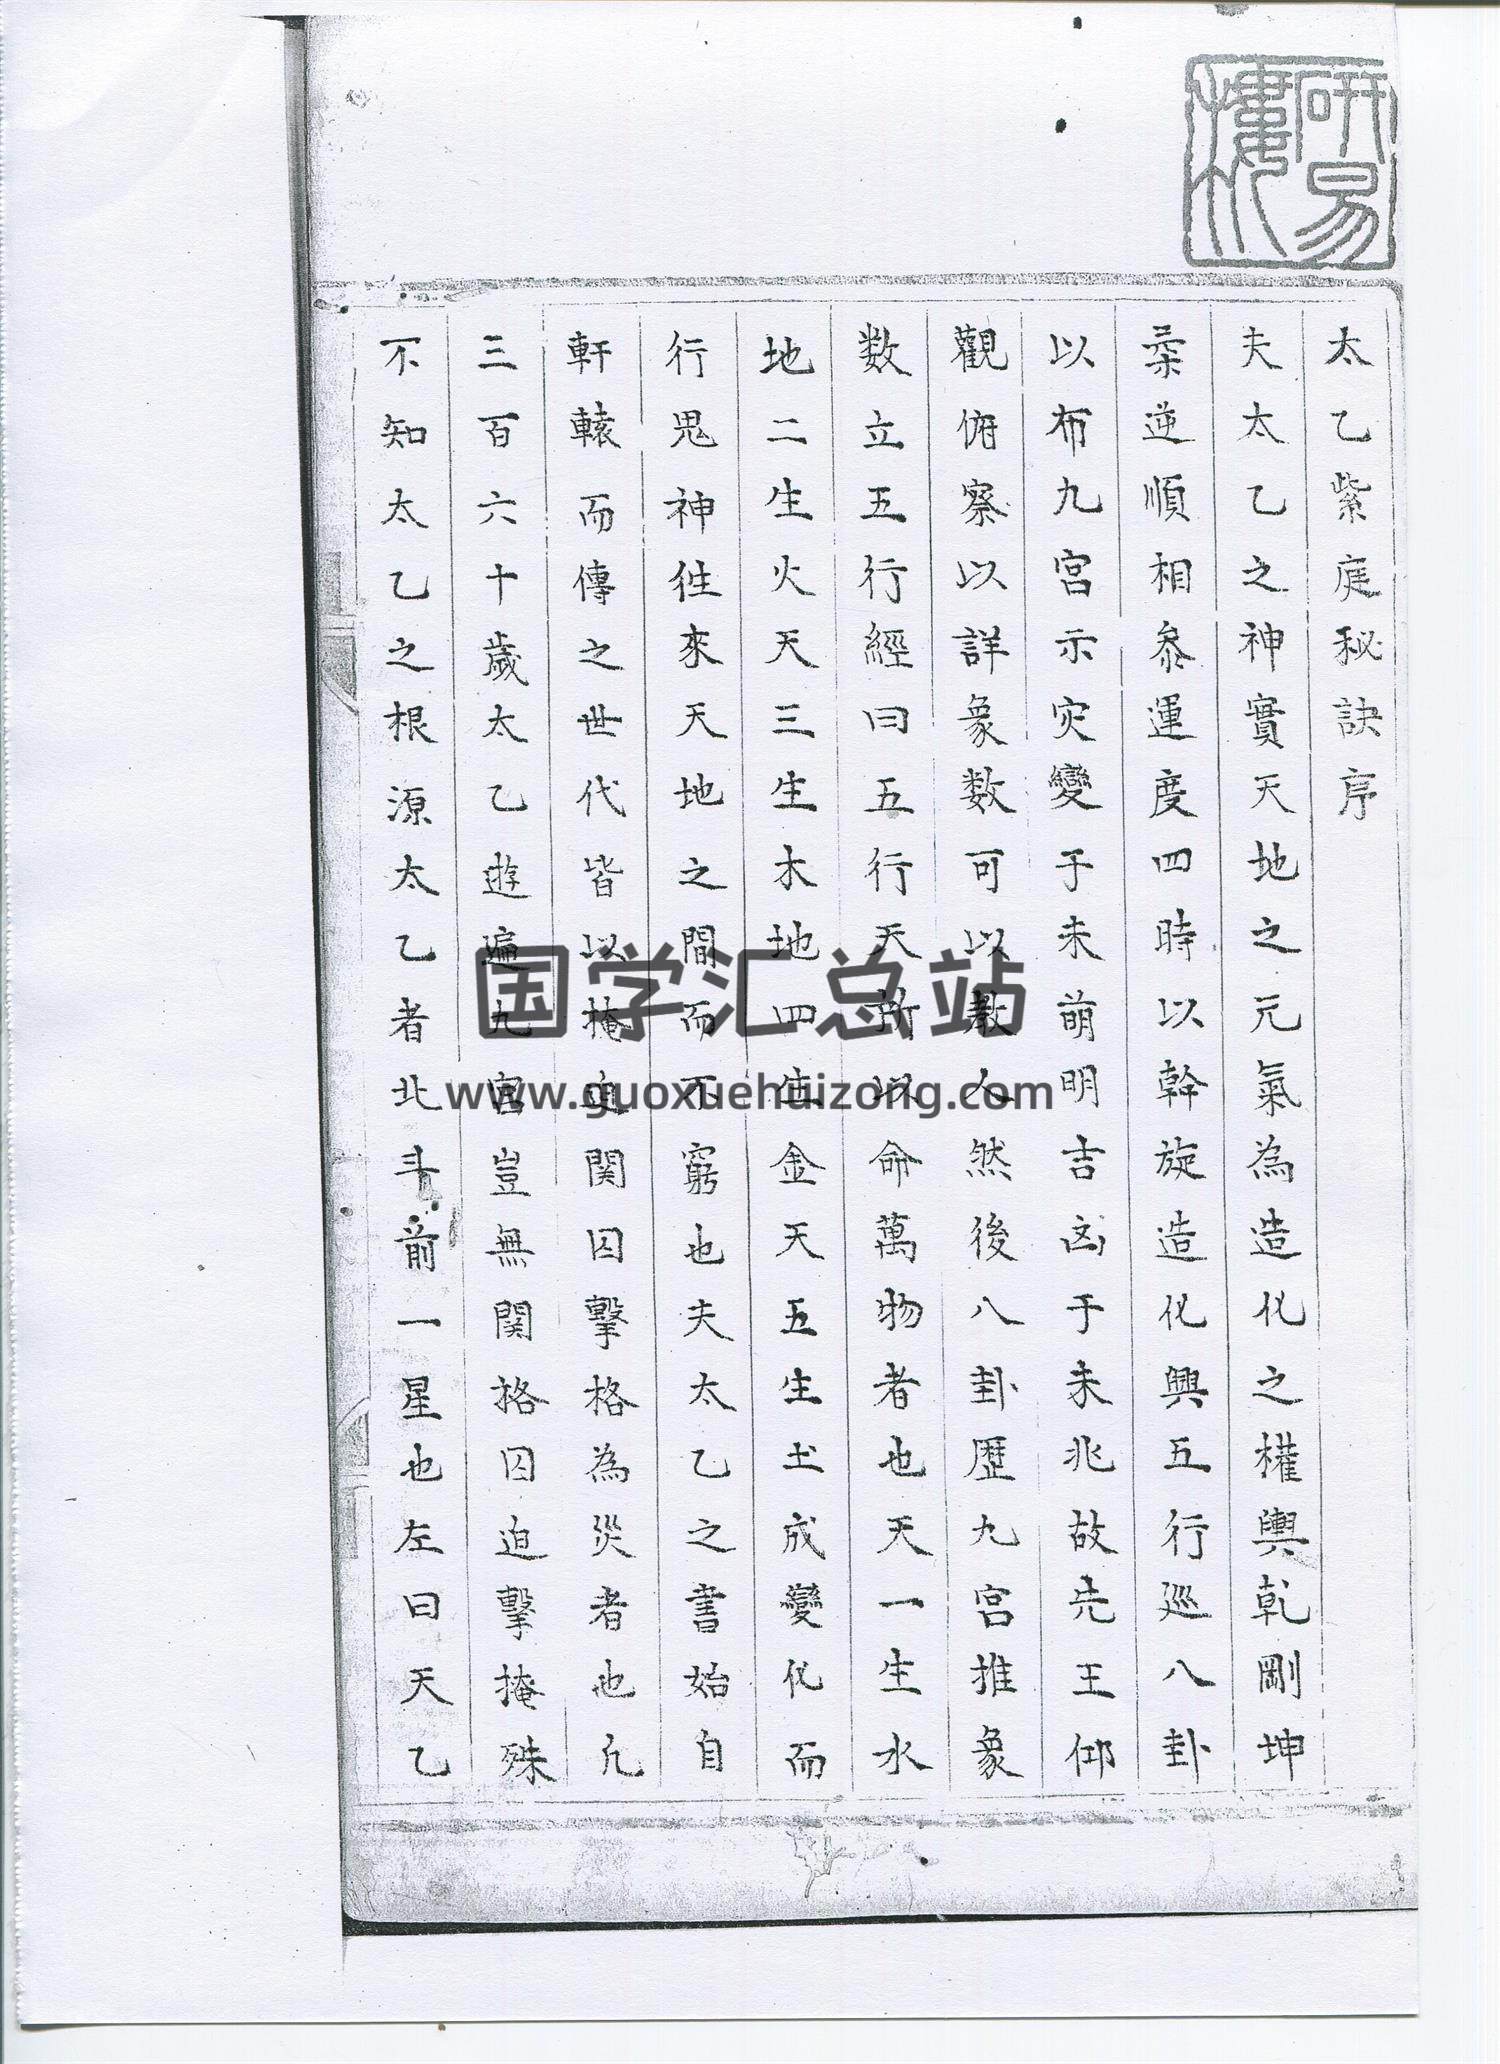 研易樓
太乙紫庭秘訣序
夫太乙之神實天地之元氣為造化之權輿乾剛坤
柔逆順相叅運度四時以斡旋造化興五行巡八卦
以布九宮示灾變于未萌明吉凶于未兆故先王仰
觀俯察以詳象数可以教人然後八卦歷九宮推象
数立五行經曰五行天所以命萬物者也天一生水
地二生火天三生木地四生金天五生土成變化而
行鬼神徃來天地之間而不窮也夫太乙之書始自
軒轅而傳之世代皆以掩迫関囚擊格為災者也凢
三百六十歲太乙遊遍九宮豈無関格囚迫擊掩殊
不知太乙之根源太乙者北斗前一星也左曰天乙
国学汇总站
www.guoxuehuizong.com